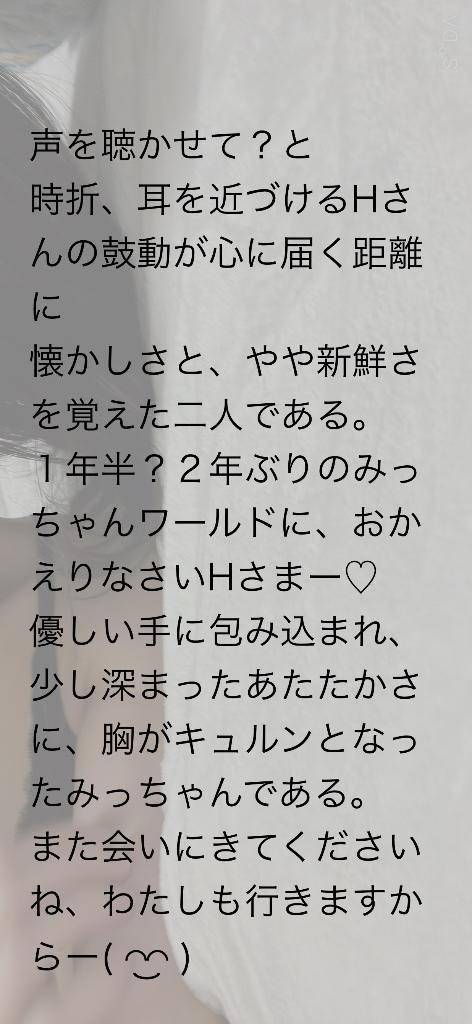 SODA
声を聴かせて？と
時折、耳を近づけるHさ
んの鼓動が心に届く距離
に
懐かしさと、やや新鮮さ
を覚えた二人である。
１年半？２年ぶりのみっ
ちゃんワールドに、おか
えりなさいHさまー♡
優しい手に包み込まれ、
少し深まったあたたかさ
に、胸がキュルンとなっ
たみっちゃんである。
また会いにきてください
ね、わたしも行きますか
らー( ◡̈ )